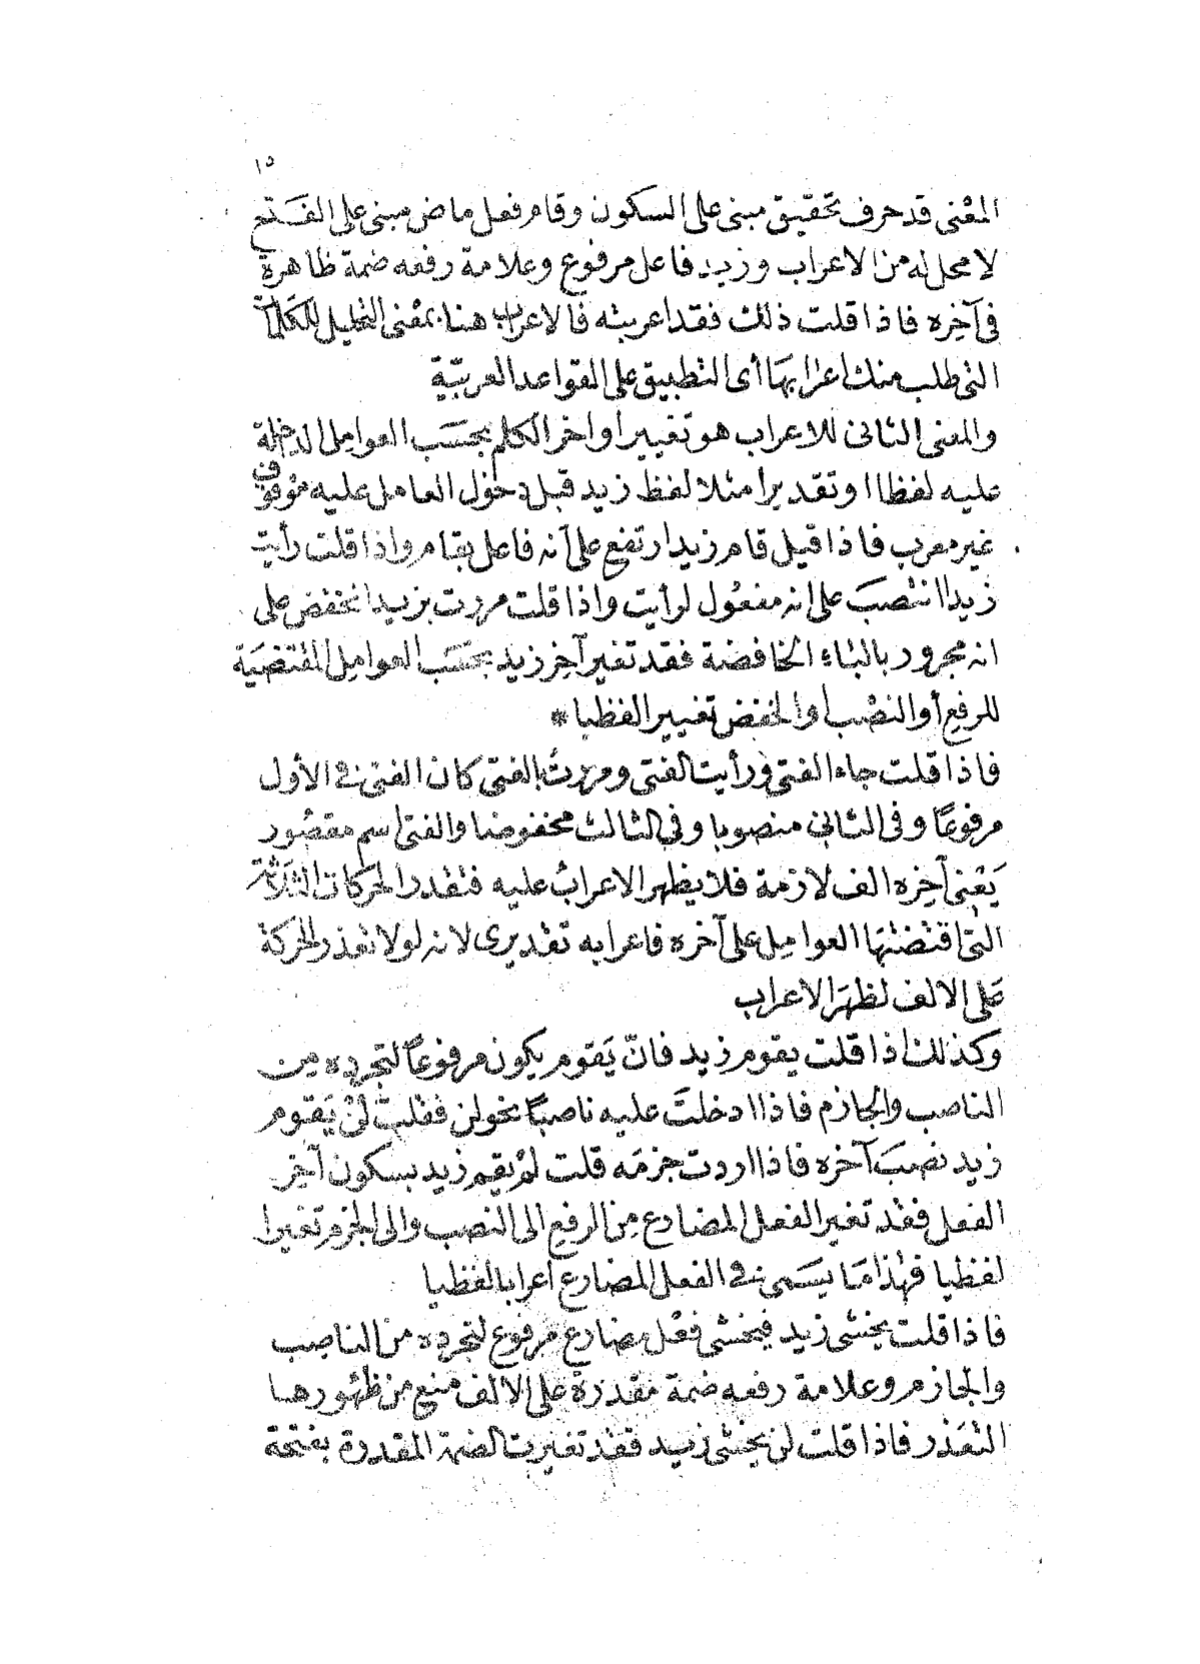 ١٥
المعْنى قد حرف تحقيق مبنى على السكون وقام فعل ماض مبنى على الفَتح
لا محل له من الاعراب وزيد فاعل مرفوع وعلامة رفعه ضمة ظاهرة
فى آخِره فاذا قلت ذلك فقد اعربته فالاعراب هنا بمعْنى التحليل للكَلمَة
التى طلب منك اعْرابهَا أى التطبيق على القواعد العربيّة
والمعنى الثانى للاعراب هو تغيير اواخر الكلم بحسَب العوامِل الداخلة
عليه لفظا او تقديرا مثلا لفظ زيد قبل دخول العامل عليه موْقوف
غير معرب فاذا قيل قام زيد ارتفع على أنه فاعل بقام واذا قلت رأيت
زيدا انتصبَ على انه مفعُول لرأيت واذا قلت مررت بزيد انخفض على
انه مجرور بالباء الخافضة فقد تغير آخِر زيد بحسَب العوامِل المقتضيَة
للرفعِ أو النصْب أو الخفض تغييرا لفظيا *
فاذا قلت جاء الفتى ورأيت الفتى ومررتُ بالفتى كان الفتى فى الأول
مرفوعًا وفى الثانى منصوبا وفى الثالث مخفوضا والفتى اسم مقصُور
يَعْنى آخِره الف لازمة فلا يظهر الاعرابُ عليه فتقدر الحَركات الثلاثة
التى اقتضتهَا العوامِل على آخره فاعرابه تقْديرى لانه لولا تعذر الحَركة
عَلى الالف لظهَر الاعراب
وكذلك اذا قلت يقوم زيد فانّ يَقوم يكون مرفوعًا لتجرده من
الناصب والجازم فاذا ادخلتَ عليه ناصبًا نحو لن فقلت لنْ يَقوم
زيد نصبَ آخره فاذا اردت جزمَه قلت لمْ يقم زيد بسكون آخِر
الفعل فقد تغير الفعل المضارع مِن الرفعِ الى النصب والى الجزم تغيرا
لفظيا فهٰذا مَا يسَمى فى الفعل المضارع اعرابا لفظيا
فاذا قلت يخشى زيد فيخشى فعْل مضارع مرفوع لتجرده من الناصِب
والجازم وعلامة رفعه ضمة مقدرَة على الالف منع من ظهُورهـا
التعَذر فاذا قلت لن يخشى زيد فقد تغيرت الضمة المقدرة بفتحة